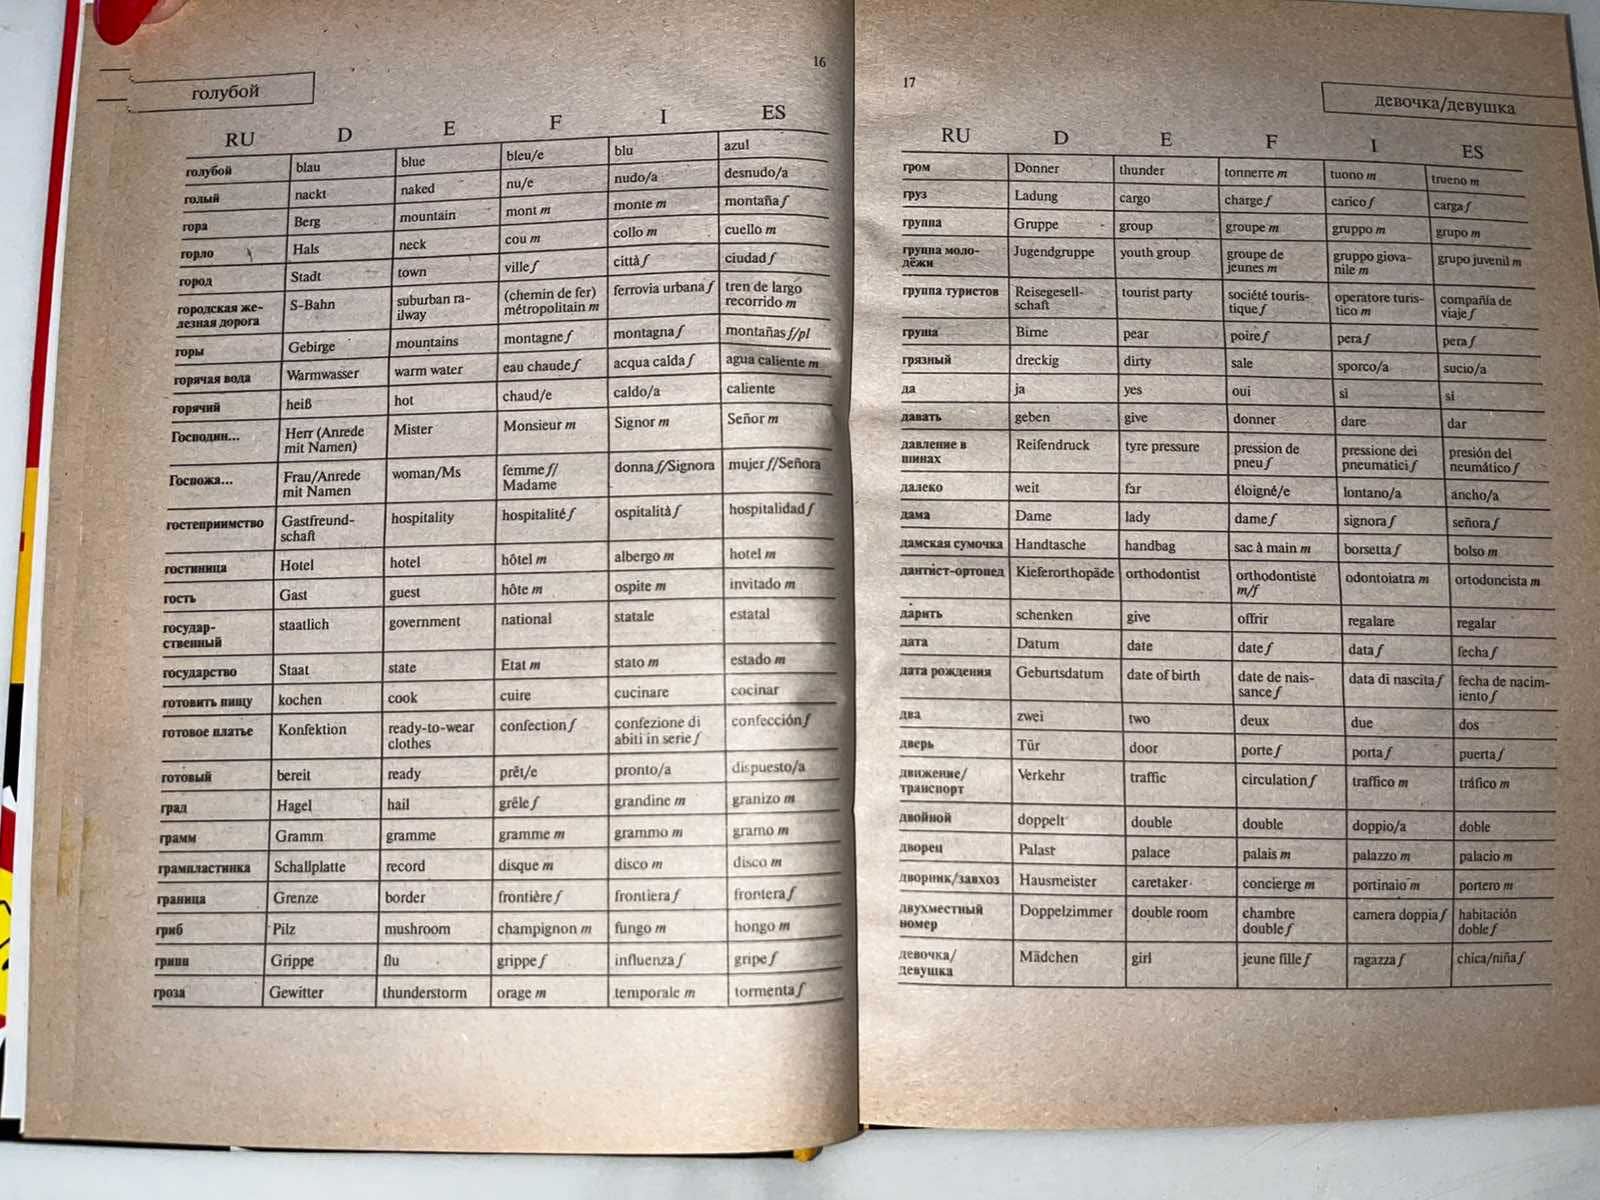 16
голубой
RU D E F I ES
голубой blau blue bleu/e blu azul
голый nackt naked nu/e nudo/a desnudo/a
гора Berg mountain mont m monte m montaña f
горло Hals neck cou m collo m cuello m
город Stadt town ville f città f ciudad f
городская же- S-Bahn suburban ra- (chemin de fer) ferrovia urbana f tren de largo
лезная дорога ilway métropolitain m recorrido m
горы Gebirge mountains montagne f montagna f montañas f/pl
горячая вода Warmwasser warm water eau chaude f acqua calda f agua caliente m
горячий heiß hot chaud/e caldo/a caliente
Господин... Herr (Anrede Mister Monsieur m Signor m Señor m
mit Namen)
Госпожа... Frau/Anrede woman/Ms femme f/ donna f/Signora mujer f/Señora
mit Namen Madame
гостеприимство Gastfreund- hospitality hospitalité f ospitalità f hospitalidad f
schaft
гостиница Hotel hotel hôtel m albergo m hotel m
гость Gast guest hôte m ospite m invitado m
государ- staatlich government national statale estatal
ственный
государство Staat state Etat m stato m estado m
готовить пищу kochen cook cuire cucinare cocinar
готовое платье Konfektion ready-to-wear confection f confezione di confección f
clothes abiti in serie f
готовый bereit ready prêt/e pronto/a dispuesto/a
град Hagel hail grêle f grandine m granizo m
грамм Gramm gramme gramme m grammo m gramo m
грампластинка Schallplatte record disque m disco m disco m
граница Grenze border frontière f frontiera f frontera f
гриб Pilz mushroom champignon m fungo m hongo m
грипп Grippe flu grippe f influenza f gripe f
гроза Gewitter thunderstorm orage m temporale m tormenta f
17
девочка/девушка
RU D E F I ES
гром Donner thunder tonnerre m tuono m trueno m
груз Ladung cargo charge f carico f carga f
группа Gruppe group groupe m gruppo m grupo m
группа моло- Jugendgruppe youth group groupe de gruppo giova- grupo juvenil m
дёжи jeunes m nile m
группа туристов Reisegesell- tourist party société touris- operatore turis- compañía de
schaft tique f tico m viaje f
груша Birne pear poire f pera f pera f
грязный dreckig dirty sale sporco/a sucio/a
да ja yes oui si si
давать geben give donner dare dar
давление в Reifendruck tyre pressure pression de pressione dei presión del
шинах pneu f pneumatici f neumático f
далеко weit far éloigné/e lontano/a ancho/a
дама Dame lady dame f signora f señora f
дамская сумочка Handtasche handbag sac à main m borsetta f bolso m
дантист-ортопед Kieferorthopäde orthodontist orthodontiste odontoiatra m ortodoncista m
m/f
дарить schenken give offrir regalare regalar
дата Datum date date f data f fecha f
дата рождения Geburtsdatum date of birth date de nais- data di nascita f fecha de nacim-
sance f iento f
два zwei two deux due dos
дверь Tür door porte f porta f puerta f
движение/ Verkehr traffic circulation f traffico m tráfico m
транспорт
двойной doppelt double double doppio/a doble
дворец Palast palace palais m palazzo m palacio m
дворник/завхоз Hausmeister caretaker concierge m portinaio m portero m
двухместный Doppelzimmer double room chambre camera doppia f habitación
номер double f doble f
девочка/ Mädchen girl jeune fille f ragazza f chica/niña f
девушка